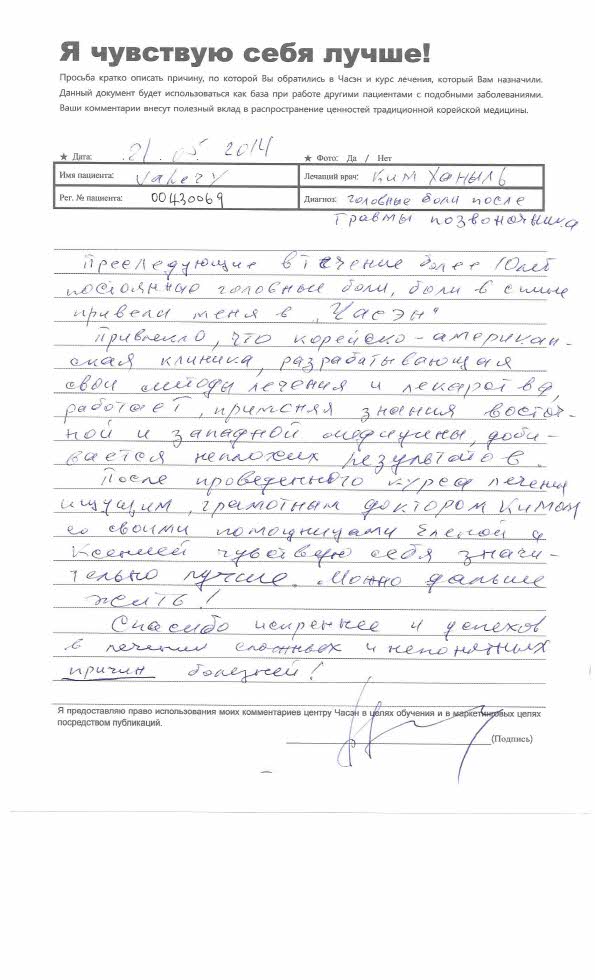 Я чувствую себя лучше!
Просьба кратко описать причину, по которой Вы обратились в Часэн и курс лечения, который Вам назначили.
Данный документ будет использоваться как база при работе другими пациентами с подобными заболеваниями.
Ваши комментарии внесут полезный вклад в распространение ценностей традиционной корейской медицины.
★ Дата: 21.05.2014 ★ Фото: Да / Нет
Имя пациента: Valery Лечащий врач: Ким Ханыль
Рег. № пациента: 00430069 Диагноз: головные боли после
травмы позвоночника
Преследующие в течение более 10 лет
постоянно головные боли, боли в спине
привели меня в „Часэн"
Привлекло, что корейско-американ-
ская клиника, разрабатывающая
свои методы лечения и лекарства,
работает, применяя знания восточ-
ной и западной медицины, доби-
вается неплохих результатов.
После проведенного курса лечения
ищущим, грамотным доктором Кимом
со своими помощницами Еленой и
Ксенией чувствую себя значи-
тельно лучше. Можно дальше
жить!
Спасибо искреннее и успехов
в лечении сложных и непонятных
причин болезней!
Я предоставляю право использования моих комментариев центру Часэн в целях обучения и в маркетинговых целях
посредством публикаций.
(Подпись)